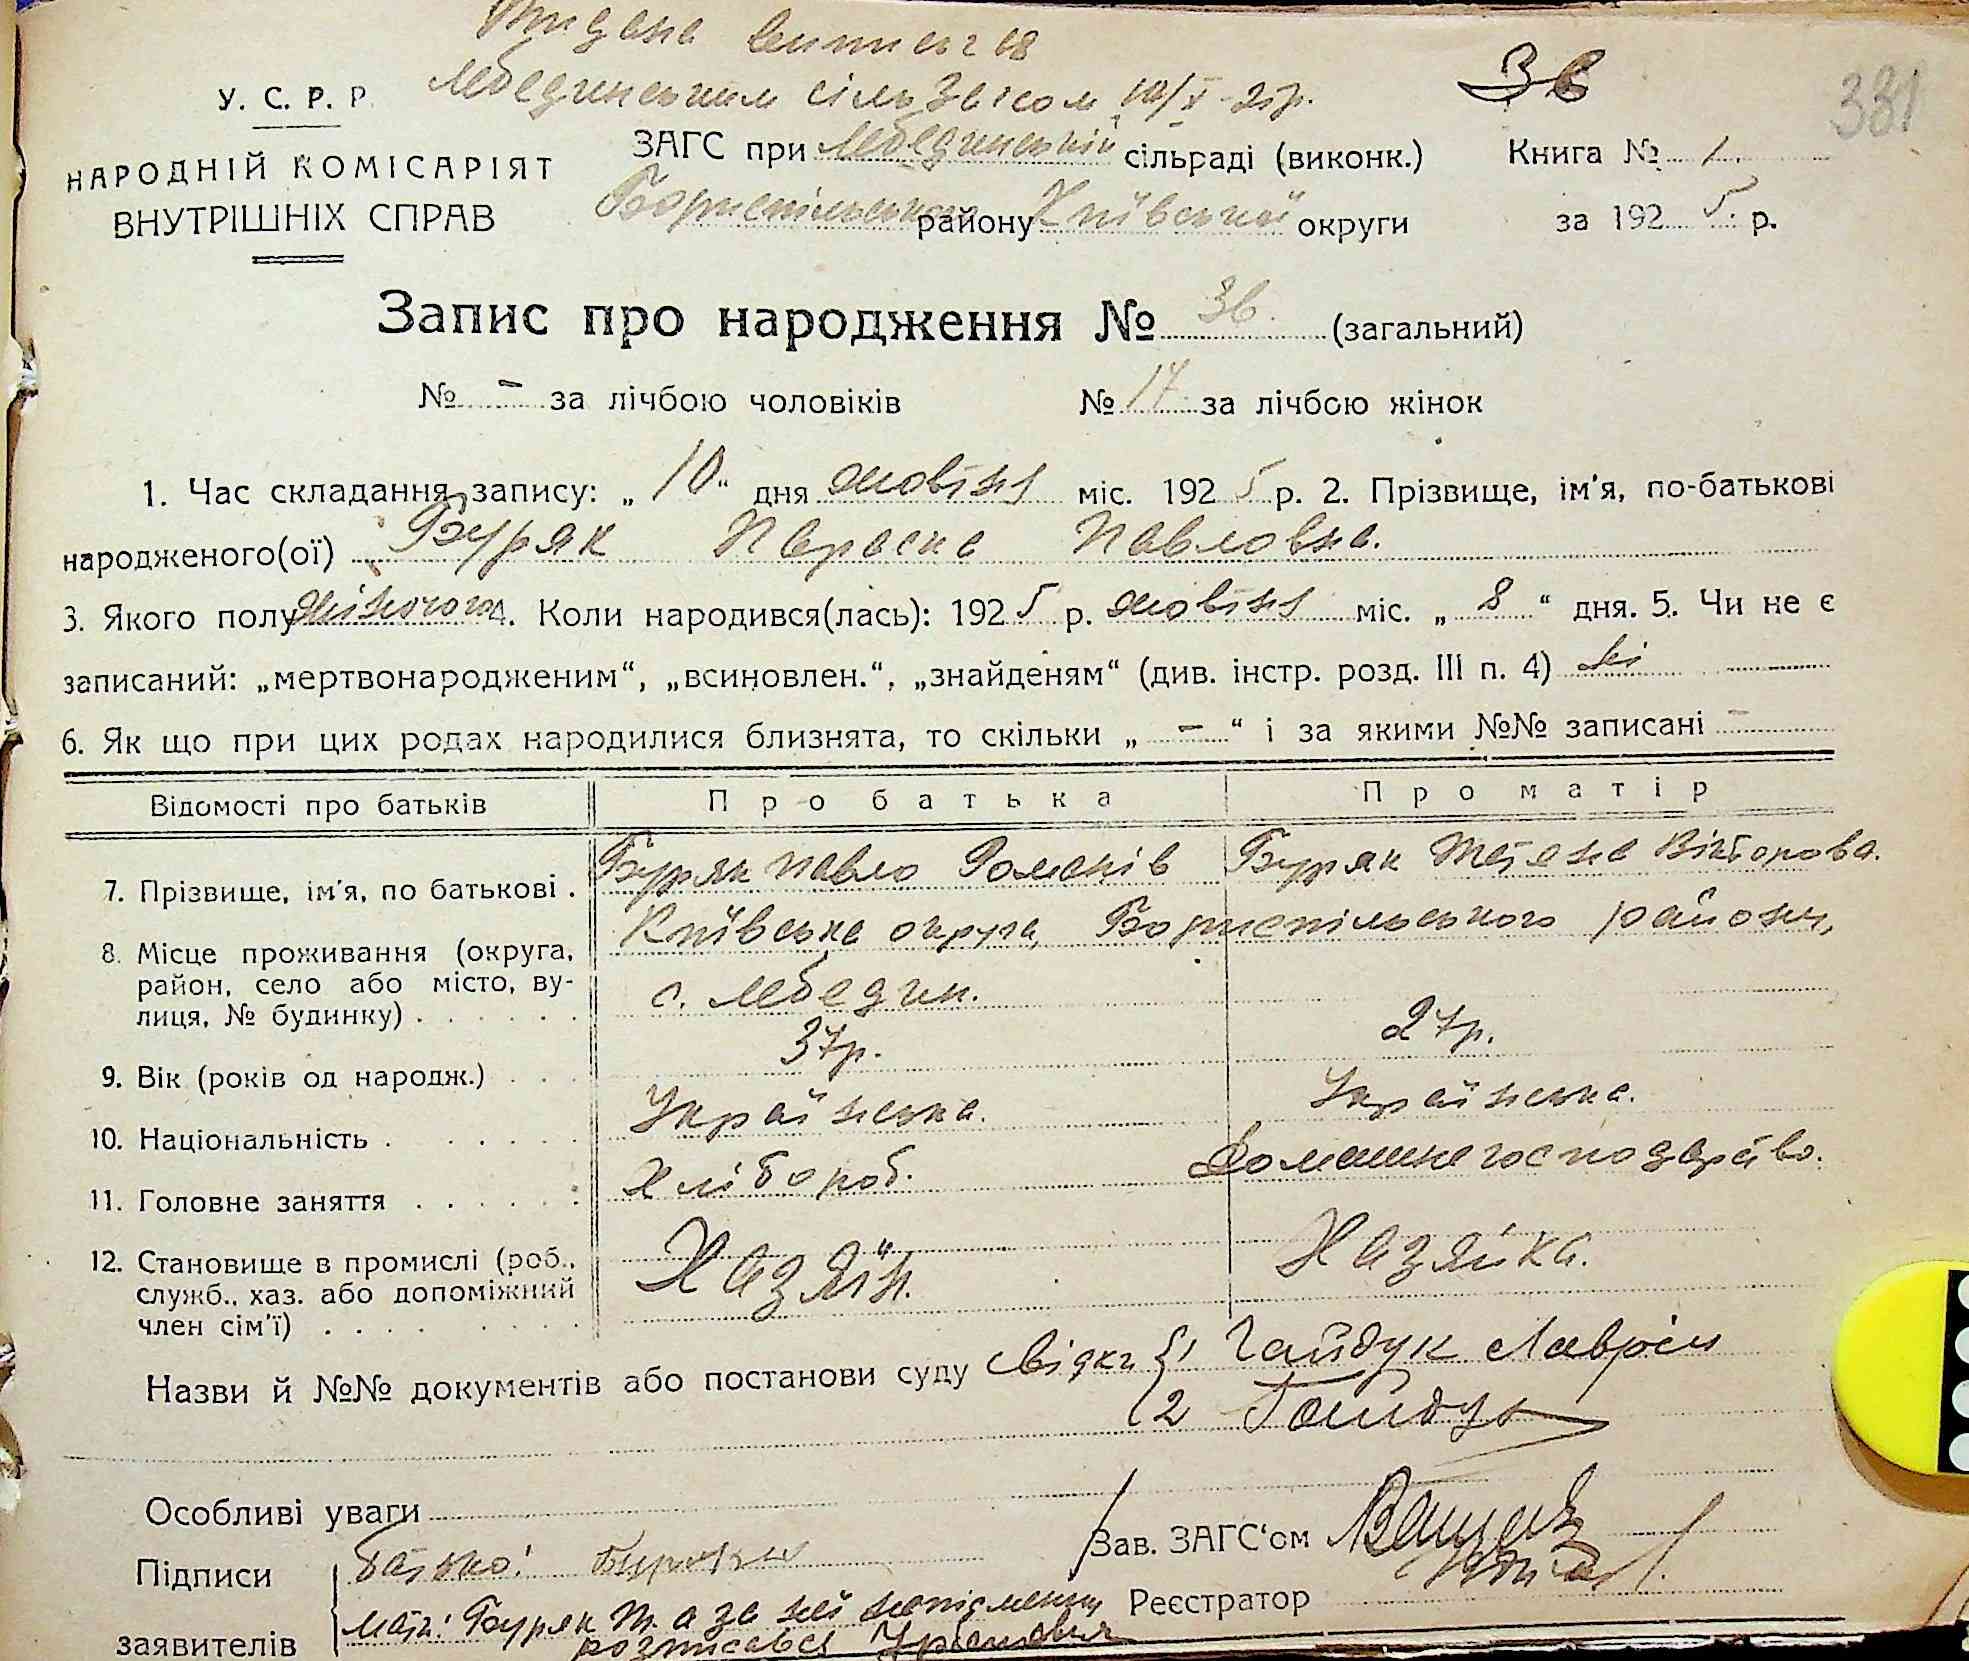 Видана виписка
Лебединським сільЗагсом 10/X-25р.
36
331
У. С. Р. Р.
НАРОДНІЙ КОМІСАРІЯТ
ВНУТРІШНІХ СПРАВ
ЗАГС при Лебединській сільраді (виконк.)
Бориспільського району Київської округи
Книга № 1.
за 1925 р.
Запис про народження № 36. (загальний)
№ - за лічбою чоловіків № 17 за лічбою жінок
1. Час складання запису: „10“ дня жовтня міс. 1925 р. 2. Прізвище, ім'я, по-батькові
народженого(ої) Буряк Параска Павловна.
3. Якого полу жіночого 4. Коли народився(лась): 1925 р. жовтня міс. „8“ дня. 5. Чи не є
записаний: „мертвонародженим“, „всиновлен.“, „знайденям“ (див. інстр. розд. III п. 4) ні
6. Як що при цих родах народилися близнята, то скільки „-“ і за якими №№ записані -
Відомості про батьків Про батька Про матір
7. Прізвище, ім'я, по батькові . Буряк Павло Романів Буряк Тетяна Вікторова.
8. Місце проживання (округа, Київська округа, Бориспільського району,
район, село або місто, ву- с. Лебедин.
лиця, № будинку) . . . . . .
9. Вік (років од народж.) . . . 37р. 27р.
10. Національність . . . . . Українська. Українська.
11. Головне заняття . . . . . . Хлібороб. Домашнє господарство.
12. Становище в промислі (роб., Хазяїн. Хазяйка.
служб., хаз. або допоміжний
член сім'ї) . . . . . . . .
Назви й №№ документів або постанови суду Свідки { 1 Гайдук Лаврін
2 Гайдук
Особливі уваги
Підписи Батько: Зав. ЗАГС'ом
заявителів Мати: Буряк Т. а за неї неписьменну Реєстратор
розписався